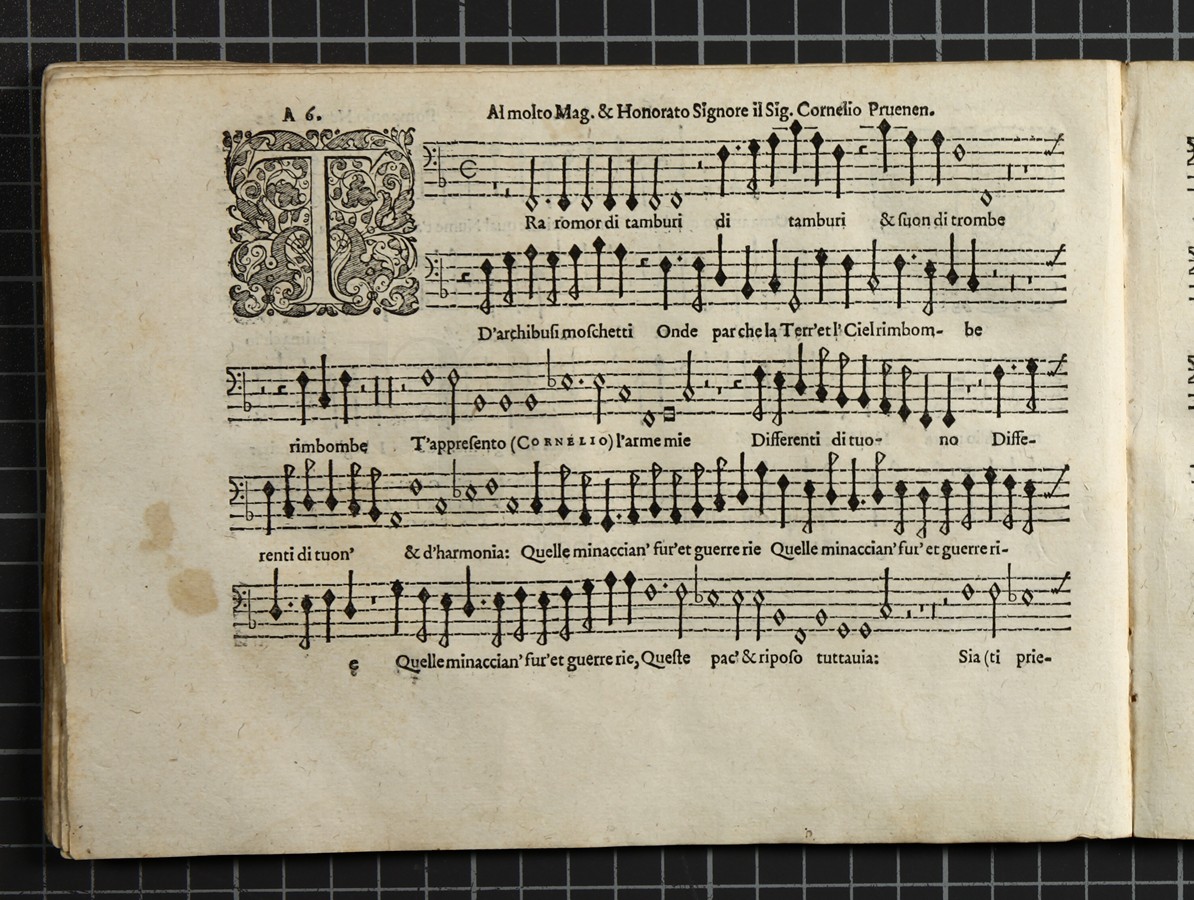 A 6. Al molto Mag. & Honorato Signore il Sig. Cornelio Pruenen.
TRa romor di tamburi di tamburi & ſuon di trombe
D'archibuſi moſchetti Onde par che la Terr'et l' Ciel rimbom- be
rimbombe T'appreſento (CORNELIO) l'arme mie Differenti di tuo- no Diffe-
renti di tuon' & d'harmonia: Quelle minaccian' fur'et guerre rie Quelle minaccian' fur' et guerre ri-
e Quelle minaccian' fur'et guerre rie, Queſte pac' & ripoſo tuttauia: Sia (ti prie-